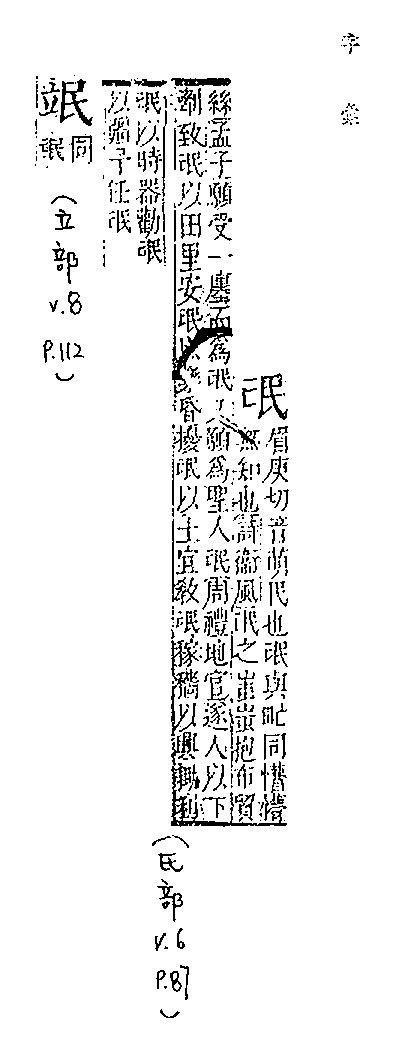 字彙
氓
眉庚切音萌民也氓與甿同懵懵
無知也詩衞風氓之蚩蚩抱布貿
絲孟子願受一廛而爲氓又願爲聖人氓周禮地官遂人以下
劑致氓以田里安氓以昏擾氓以土宜敎氓稼穡以興鋤利
氓以時器勸氓
以彊予任氓
(氏部 v.6 P.87)
同
氓
(立部 v.8 P.112)